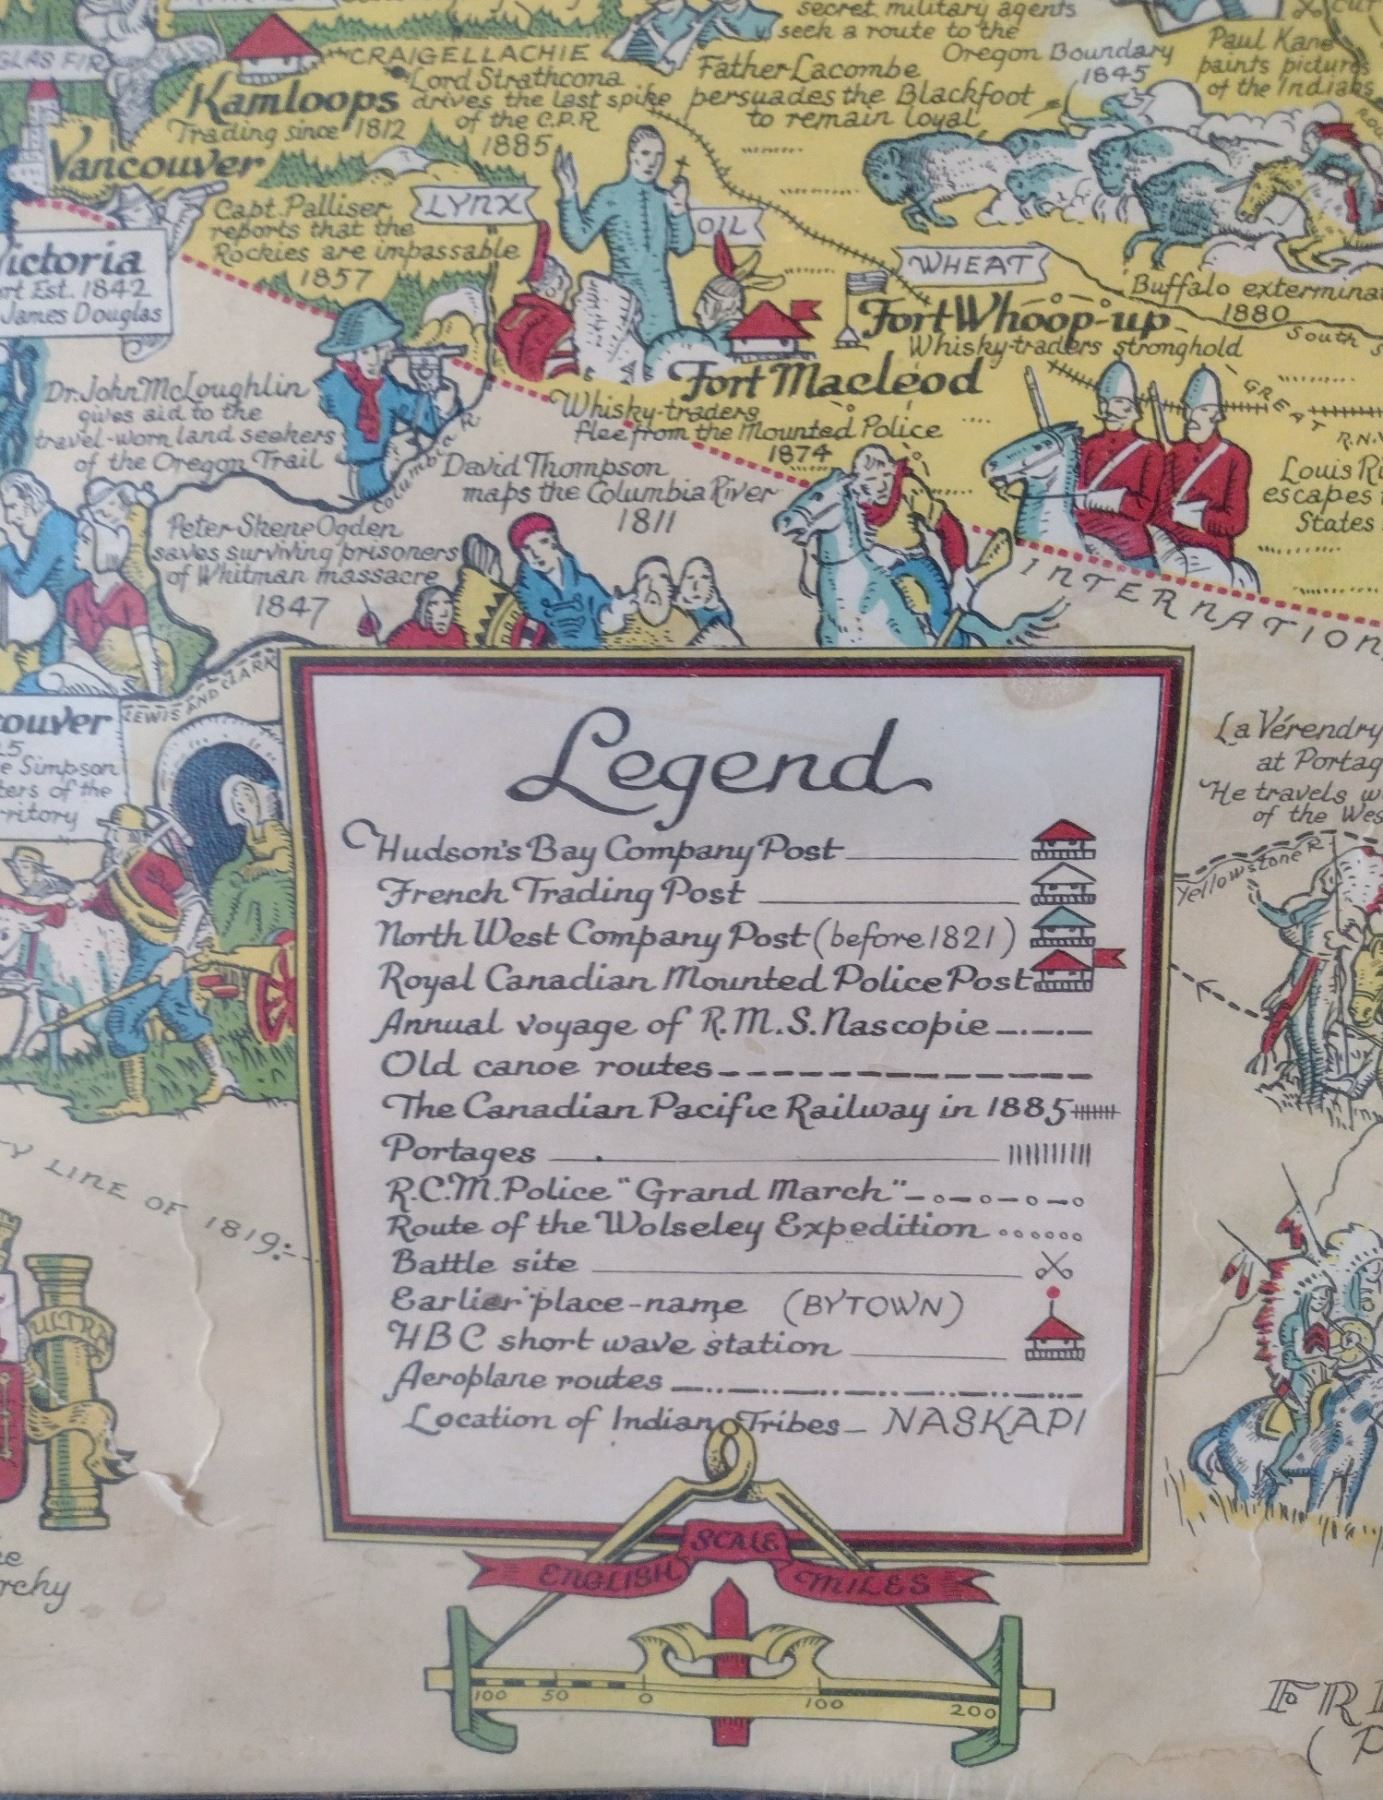 secret military agents
seek a route to the
Oregon Boundary
1845
Paul Kane
paints pictures
of the Indians
GLAS FIR
CRAIGELLACHIE
Lord Strathcona
drives the last spike
of the C.P.R
1885
Father Lacombe
persuades the Blackfoot
to remain loyal
Kamloops
Trading since 1812
Vancouver
Capt. Palliser
reports that the
Rockies are impassable
1857
LYNX
OIL
WHEAT
ictoria
rt Est. 1842
James Douglas
Buffalo extermina
1880
South S
Fort Whoop-up
Whisky-traders stronghold
Fort Macleod
Whisky-traders
flee from the Mounted Police
1874
GREAT
R.N.
Louis Ri
escapes
States
Dr. John McLoughlin
gives aid to the
travel-worn land seekers
of the Oregon Trail
Columbia R.
David Thompson
maps the Columbia River
1811
Peter Skene Ogden
saves surviving prisoners
of Whitman massacre
1847
INTERNATION
LEWIS AND CLARK
couver
25
e Simpson
ters of the
ritory
La Vérendry
at Portag
He travels w
of the Wes
Yellowstone R.
Legend
Hudson's Bay Company Post
French Trading Post
North West Company Post (before 1821)
Royal Canadian Mounted Police Post
Annual voyage of R.M.S. Nascopie
Old canoe routes
The Canadian Pacific Railway in 1885
Portages
R.C.M. Police "Grand March"
Route of the Wolseley Expedition
Battle site
Earlier place-name (BYTOWN)
HBC short wave station
Aeroplane routes
Location of Indian Tribes - NASKAPI
Y LINE OF 1819:-
ULTRA
rchy
SCALE
ENGLISH MILES
100 50 0 100 200
FRE
(P